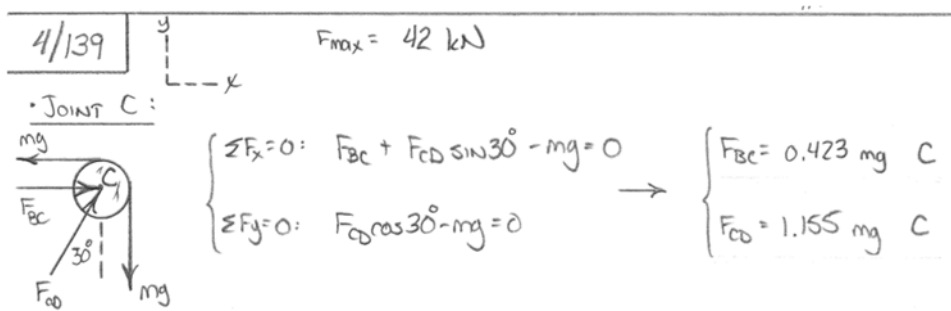 4/139
y
x
Fmax = 42 kN
• JOINT C:
mg
C
F_BC
30°
F_CD
mg
ΣFx=0: F_BC + F_CD SIN30° - mg = 0
ΣFy=0: F_CD cos30° - mg = 0
→
F_BC = 0.423 mg C
F_CD = 1.155 mg C